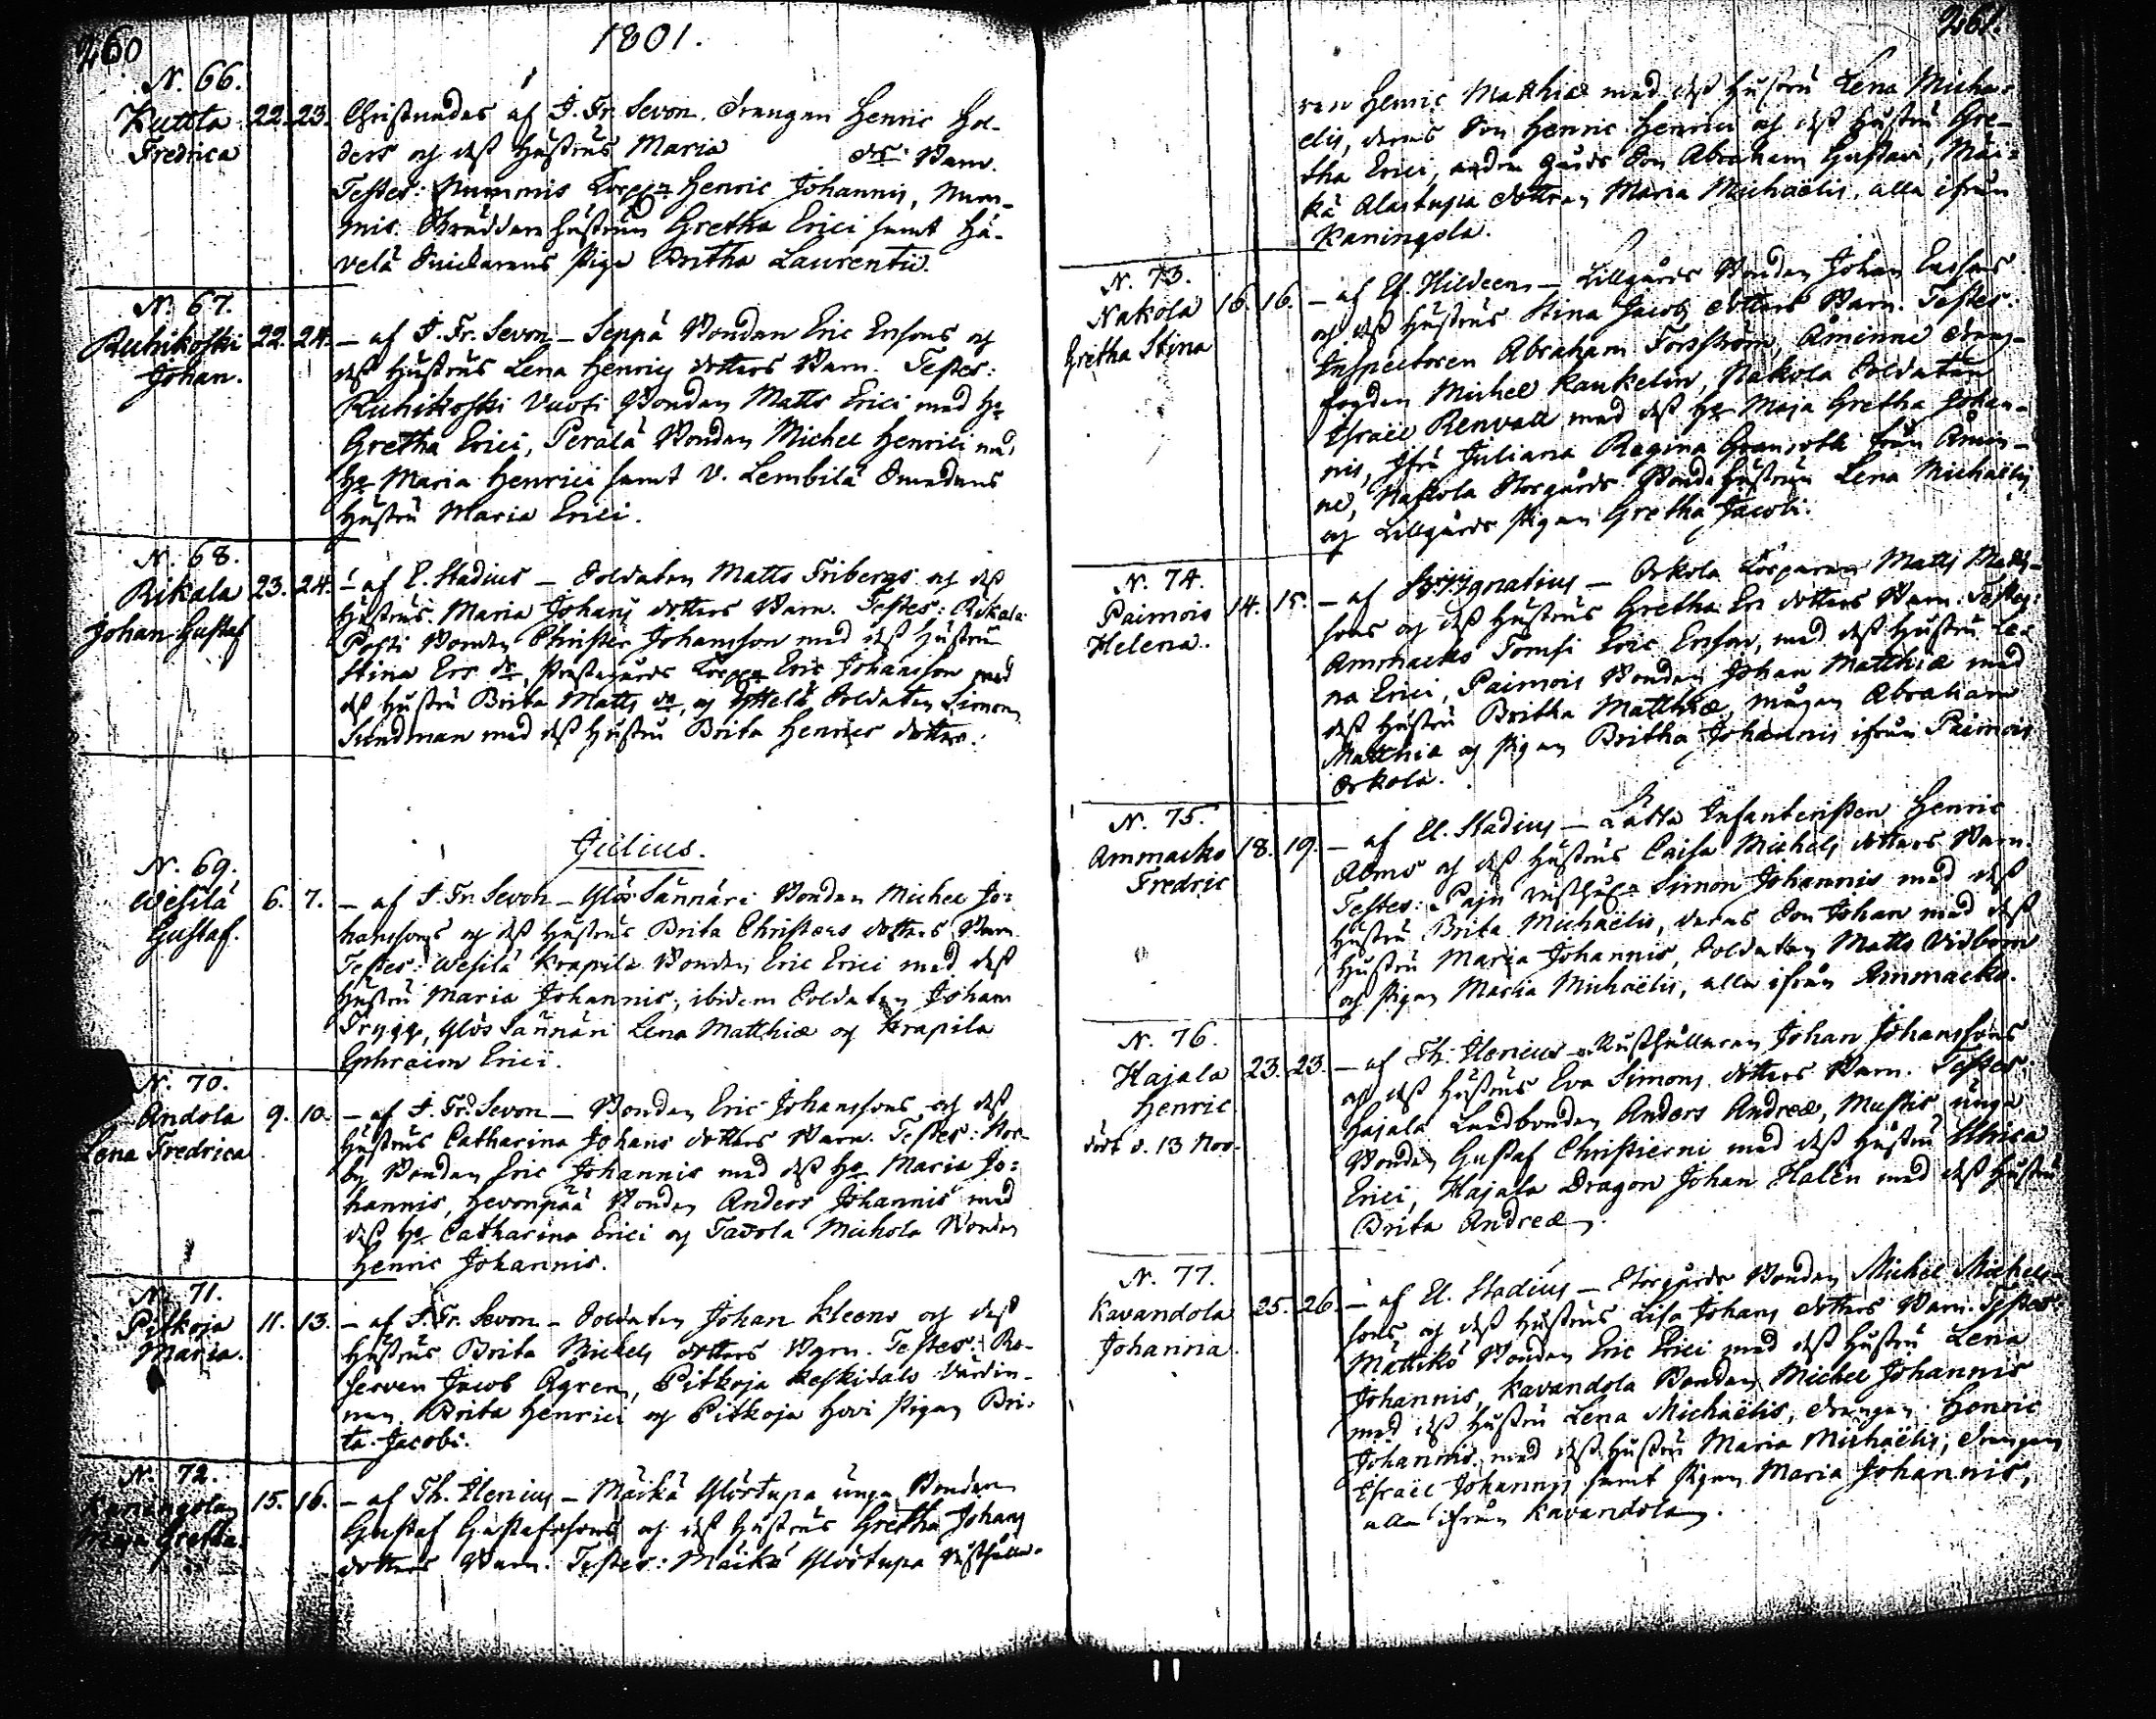 260
1801.
N. 66.
Kuttla 22. 23. Christnades af J. Fr. Sevon. Drängen Henric Hol-
Fredrica
ders och dess hustrus Maria dr. Barn.
Testes: Nummis Henric Johannis, Num-
mis hustrun Gretha Erici samt Hä-
velä piga Britha Laurentii.
N. 67.
Ruhikoski 22. 24. – af J. Fr. Sevon – Seppä Bonden Eric Ersons och
Johan.
dess hustrus Lena Henrics dotters Barn. Testes:
Ruhikoski Bonden Matts Erici med H:
Gretha Erici, Perälä Bonden Michel Henrici med
H: Maria Henrici samt V. Lembilä Smedens
hustru Maria Erici.
N. 68.
Rikala 23. 24. – af E. Stadius – Soldaten Matts Fribergs och dess
Johan Gustaf
hustrus Maria Johans dotters Barn. Testes: Rikala
Posti Bonden Christer Johansson med dess hustru
Stina Ers dr, Prestegårds Eric Johansson med
dess hustru Brita Matts dr, och Soldaten Simon
Sundman med dess hustru Brita Henrics dotter.
Julius.
N. 69.
Wesilä 6. 7. – af J. Fr. Sevon – Ylös Sannäri Bonden Michel Jo-
Gustaf.
hanssons och dess hustrus Brita Christers dotters Barn
Testes: Wesilä Krapila Bonden Eric Erici med dess
hustru Maria Johannis, ibidem Soldaten Johan
Trygg, Ylös Sannäri Lena Matthiæ och Krapila
Ephraim Erici.
N. 70.
Andola 9. 10. – af J. Fr. Sevon – Bonden Eric Johanssons och dess
Lena Fredrica
hustrus Catharina Johans dotters Barn. Testes: Nor-
by Bonden Eric Johannis med dess H: Maria Jo-
hannis, Hevonpää Bonden Anders Johannis med
dess H: Catharina Erici och Tavola Bonden
Henric Johannis.
N. 71.
Pitkoja 11. 13. – af J. Fr. Sevon – Soldaten Johan Kleens och dess
Maria.
hustrus Brita Michels dotters Barn. Testes: Re-
serven Jacob Ågren, Pitkoja Keskitalo Värdin-
nan Brita Henrici och Pitkoja Hovi pigan Bri-
ta Jacobi.
N. 72.
Kaningola 15. 16. – af Th. Ilenius – Mäikä Ylöstupa unga Bonden
Maja Gretha.
Gustaf Gustafssons och dess hustrus Gretha Johans
dotters Barn. Testes: Mäikä Ylöstupa Rusthålla-
261.
ren Henric Matthiæ med dess hustru Lena Micha-
elis, deras Son Henric Henrici och dess hustru Gre-
tha Erici, andra Son Abraham Gustavi, Mäi-
kä Alastupa dottren Maria Michaëlis, alla ifrån
Kaningola.
N. 73.
Nakola 16. 16. – af E. Hildeen – Lillgårds Bonden Johan Ersons
Gretha Stina
och dess hustrus Stina Jacobs dotters Barn. Testes:
Inspectoren Abraham Forsström, Åminne
fogden Michel Kaukelin, Nakola Soldaten
Israël Renvall med dess H: Maja Gretha Johan-
nis, Jfru Juliana Regina Granroth från Åmin-
ne, Nakola Storgårds Bonde hustrun Lena Michaëlis
och Lillgårds pigan Gretha Jacobi.
N. 74.
Paimois 14. 15. – af Ignatius – Orkola Matts Matts-
Helena.
sons och dess hustrus Gretha Ers dotters Barn. Testes:
Ammacko Tomfi Eric Erson, med dess hustru Le-
na Erici, Paimois Bonden Johan Matthiæ med
dess hustru Britha Matthiæ, Abraham
Matthiæ och pigan Britha Johannis ifrån Paimois
Orkola.
N. 75.
Ammacko 18. 19. – af E. Stadius – Lätta Infanteristen Henric
Fredric
Alms och dess hustrus Caisa Michels dotters Barn.
Testes: Paju Simon Johannis med dess
hustru Brita Michaëlis, deras Son Johan med dess
hustru Maria Johannis, Soldaten Matts Vidbom
och pigan Maria Michaëlis, alla ifrån Ammacko.
N. 76.
Hajala 23. 23. – af Th. Ilenius – Rusthållaren Johan Johanssons
Henric
och dess hustrus Eva Simons dotters Barn. Testes:
död d. 13 Nov.
Hajala Landbonden Anders Andreæ, Mustis unga
Bonden Gustaf Christierni med dess hustru Ulrica
Erici, Hajala Dragon Johan Halén med dess hustru
Brita Andreæ.
N. 77.
Kavandola 25. 26. – af E. Stadius – Storgårds Bonden Michel Michels-
Johanna
sons och dess hustrus Lisa Johans dotters Barn. Testes:
Mättikö Bonden Eric Erici med dess hustru Lena
Johannis, Kavandola Bonden Michel Johannis
med dess hustru Lena Michaëlis, drängen Henric
Johannis med dess hustru Maria Michaëlis, drängen
Israël Johannis samt pigan Maria Johannis,
alla ifrån Kavandola.